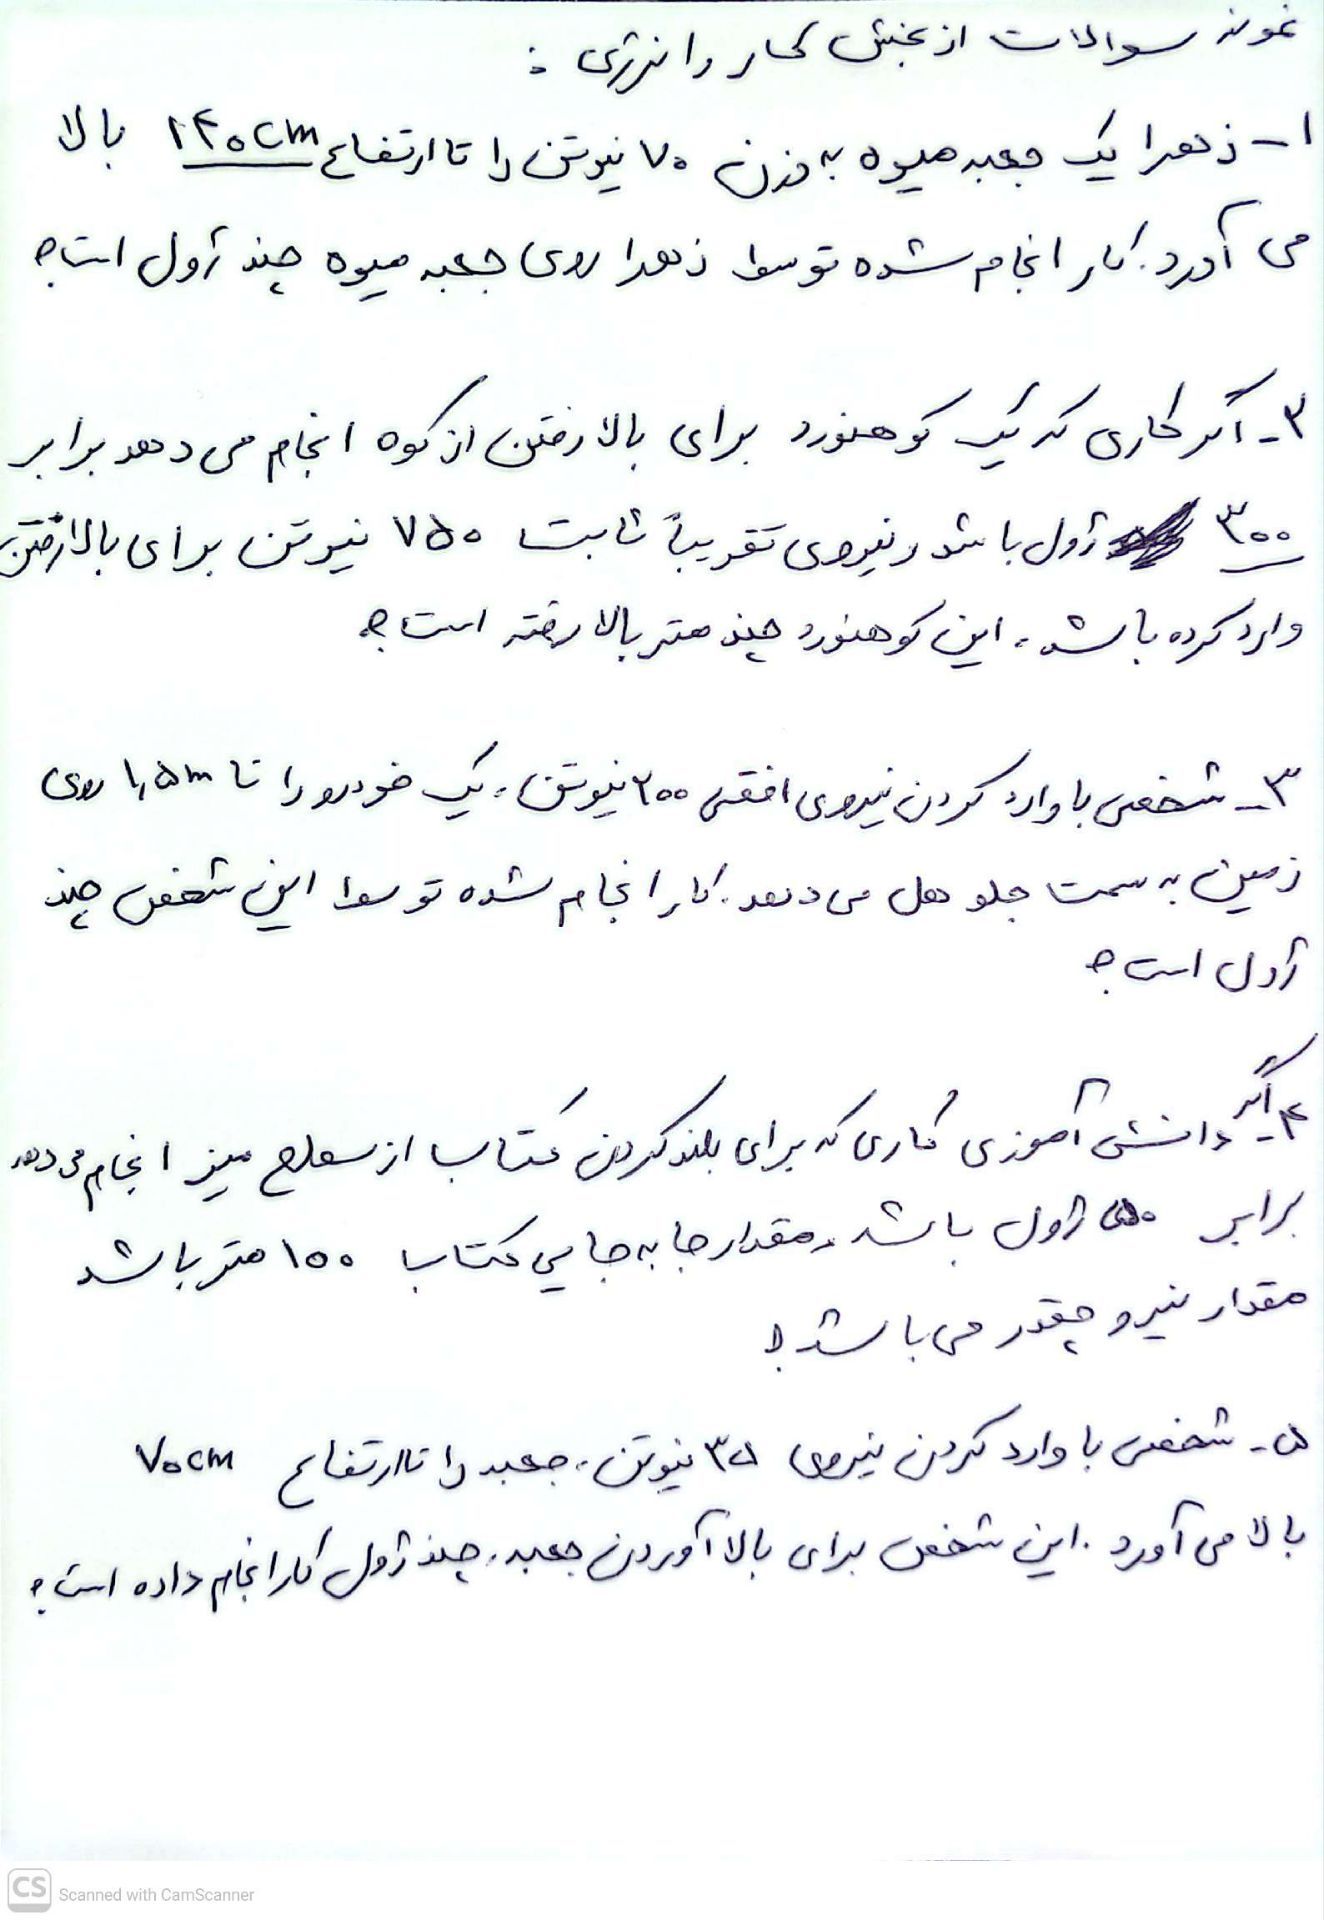 نمونه سوالات از بخش کار و انرژی :
۱- زهرا یک جعبه میوه به وزن ۷۰ نیوتن را تا ارتفاع ۱۴۰cm بالا
می آورد. کار انجام شده توسط زهرا روی جعبه میوه چند ژول است؟
۲- اگر کاری که یک کوهنورد برای بالا رفتن از کوه انجام می دهد برابر
۳۰۰ ژول باشد و نیروی تقریباً ثابت ۷۵۰ نیوتن برای بالا رفتن
وارد کرده باشد، این کوهنورد چند متر بالا رفته است؟
۳- شخصی با وارد کردن نیروی افقی ۲۰۰ نیوتن، یک خودرو را تا ۱٫۵m روی
زمین به سمت جلو هل می دهد. کار انجام شده توسط این شخص چند
ژول است؟
۴- اگر دانش آموزی کاری که برای بلند کردن کتاب از سطح میز انجام می دهد
برابر ۵۰ ژول باشد و مقدار جا به جایی کتاب ۱۰۰ متر باشد
مقدار نیرو چقدر می باشد؟
۵- شخصی با وارد کردن نیروی ۳۵ نیوتن، جعبه را تا ارتفاع ۷۰cm
بالا می آورد. این شخص برای بالا آوردن جعبه، چند ژول کار انجام داده است؟
CS Scanned with CamScanner